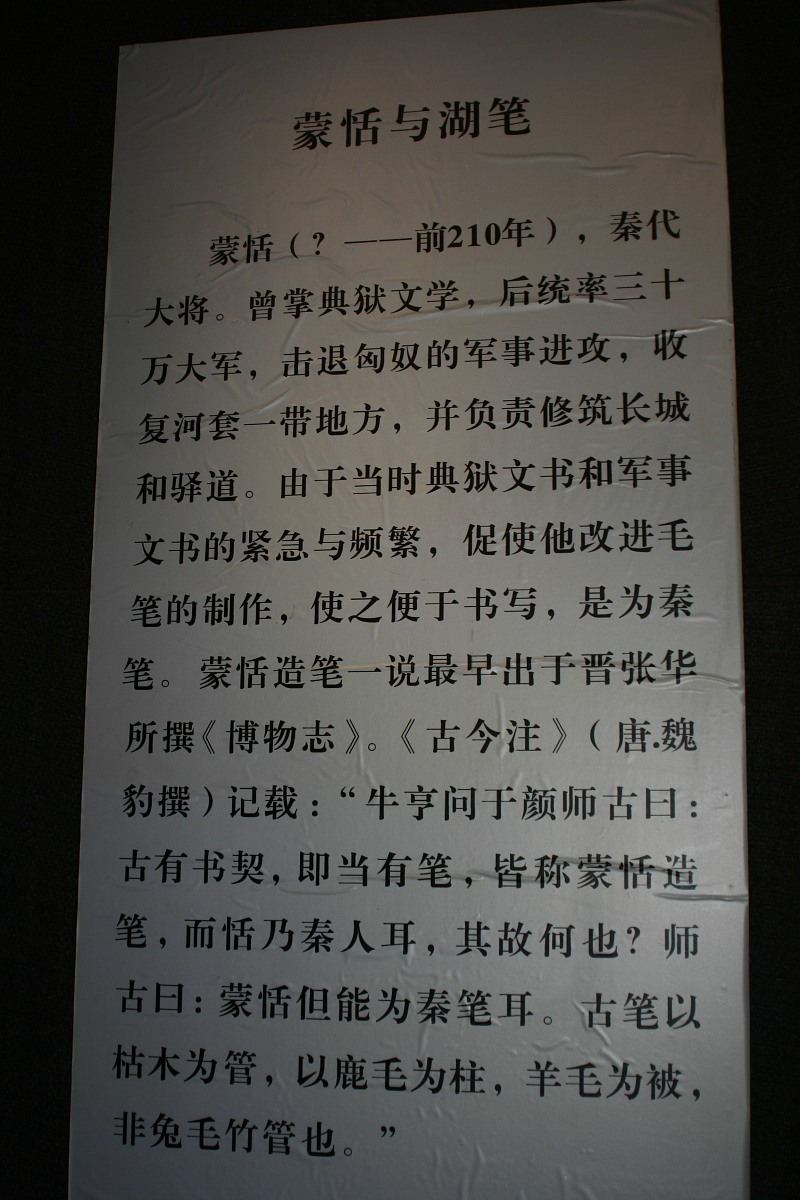 蒙恬与湖笔
蒙恬（？——前210年），秦代
大将。曾掌典狱文学，后统率三十
万大军，击退匈奴的军事进攻，收
复河套一带地方，并负责修筑长城
和驿道。由于当时典狱文书和军事
文书的紧急与频繁，促使他改进毛
笔的制作，使之便于书写，是为秦
笔。蒙恬造笔一说最早出于晋张华
所撰《博物志》。《古今注》（唐.魏
豹撰）记载：“牛亨问于颜师古曰：
古有书契，即当有笔，皆称蒙恬造
笔，而恬乃秦人耳，其故何也？师
古曰：蒙恬但能为秦笔耳。古笔以
枯木为管，以鹿毛为柱，羊毛为被，
非兔毛竹管也。”